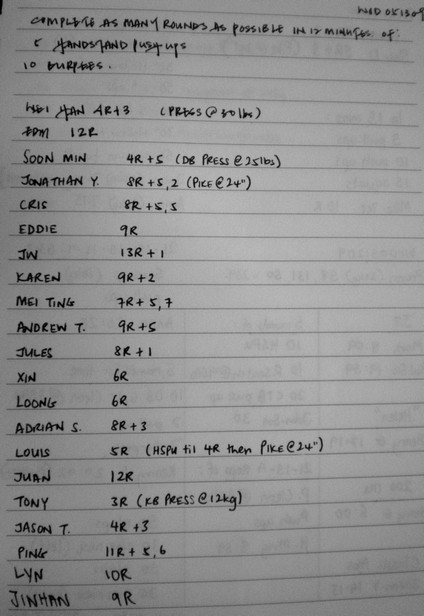 WED 051309
COMPLETE AS MANY ROUNDS AS POSSIBLE IN 12 MINUTES OF:
5 HANDSTAND PUSH UPS
10 BURPEES.
WEI HAN 4R+3 (PRESS @ 30lbs)
12R
SOON MIN 4R+5 (DB PRESS @ 25lbs)
JONATHAN Y. 8R+5,2 (PIKE @ 24")
CRIS 8R+5,5
EDDIE 9R
JW 13R+1
KAREN 9R+2
MEI TING 7R+5,7
ANDREW T. 9R+5
JULES 8R+1
XIN 6R
LOONG 6R
ADRIAN S. 8R+3
LOUIS 5R (HSPU til 4R then PIKE @ 24")
JUAN 12R
TONY 3R (KB PRESS @ 12kg)
JASON T. 4R+3
PING 11R+5,6
LYN 10R
JINHAN 9R